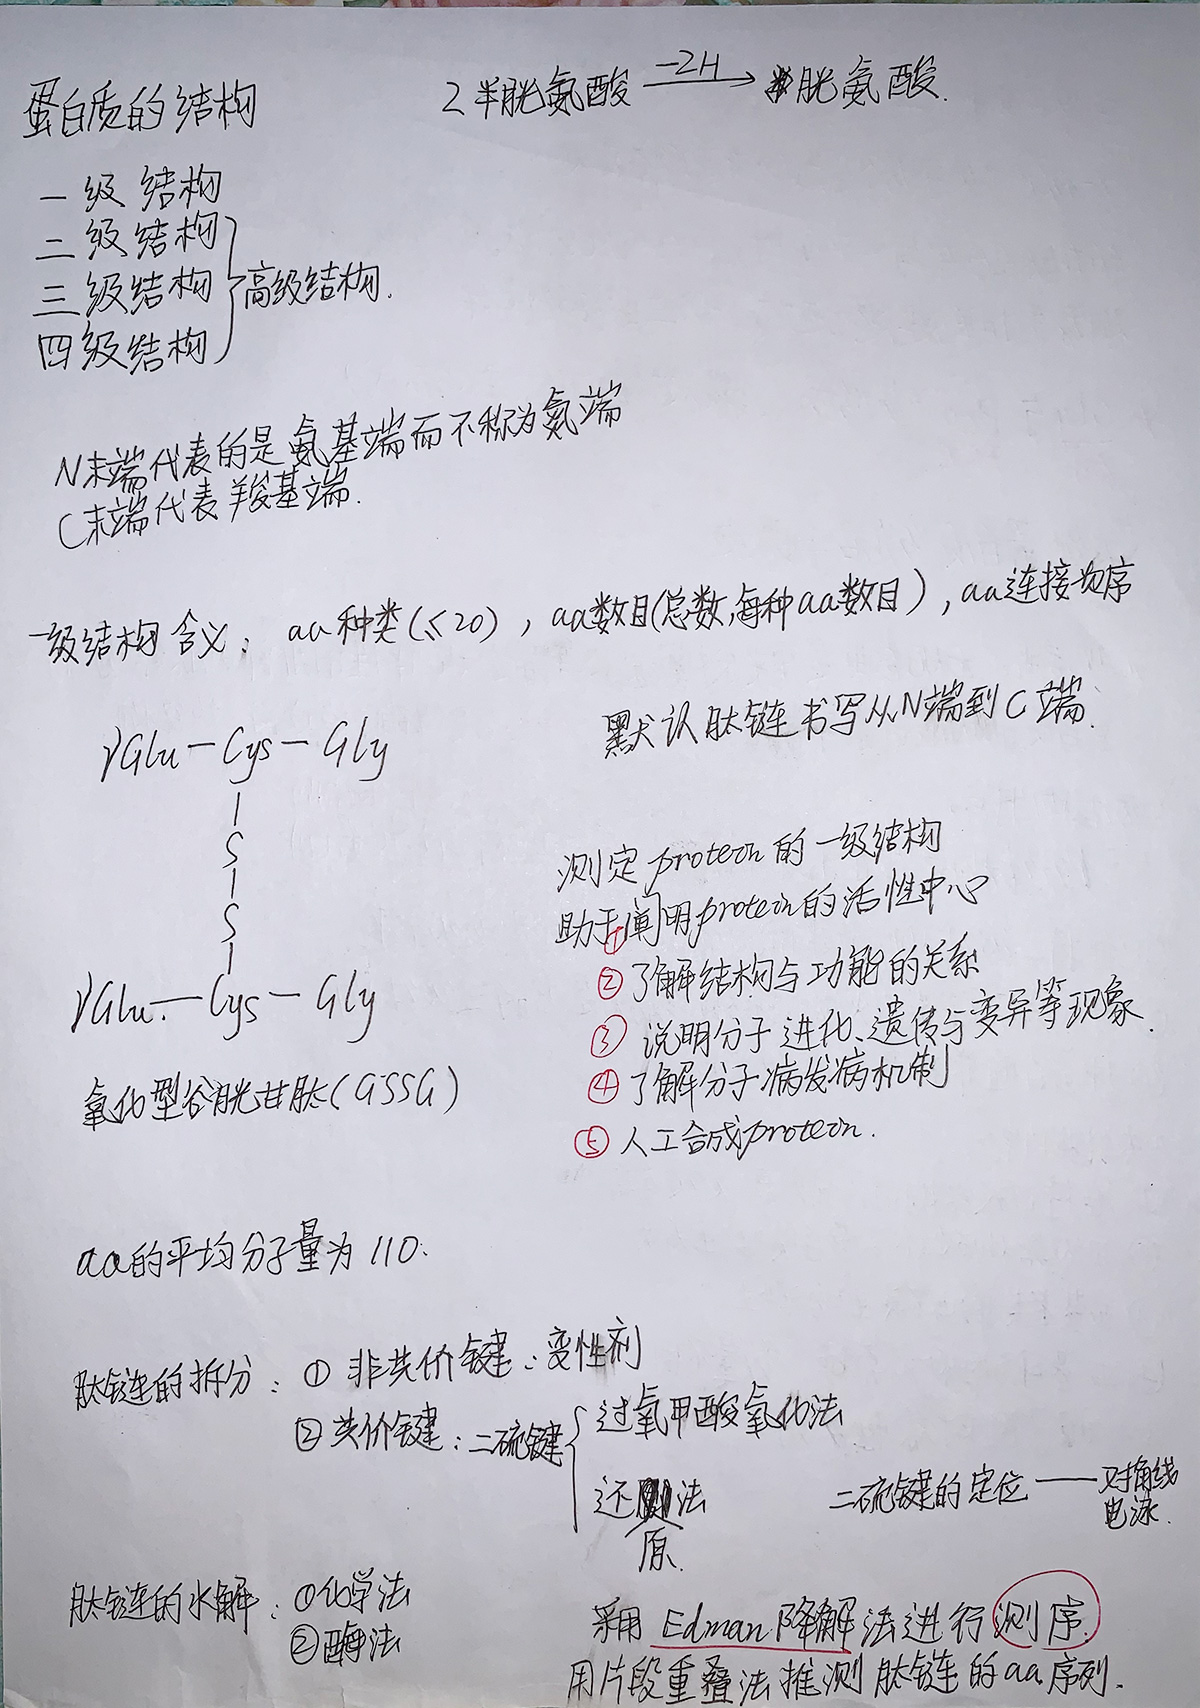 蛋白质的结构
2半胱氨酸 —-2H→ 胱氨酸.
一级结构
二级结构
三级结构
四级结构
高级结构.
N末端代表的是氨基端而不称为氮端
C末端代表羧基端.
一级结构含义: aa种类(≤20), aa数目(总数,每种aa数目), aa连接次序
默认肽链书写从N端到C端.
γGlu-Cys-Gly
|
S
|
S
|
γGlu-Cys-Gly
氧化型谷胱甘肽(GSSG)
测定protein的一级结构
助于①阐明protein的活性中心
②了解结构与功能的关系
③说明分子进化、遗传与变异等现象.
④了解分子病发病机制
⑤人工合成protein.
aa的平均分子量为110.
肽链的拆分: ①非共价键: 变性剂
②共价键: 二硫键
过氧甲酸氧化法
还原法
二硫键的定位——对角线
电泳.
肽链的水解: ①化学法
②酶法
采用Edman降解法进行测序.
用片段重叠法推测肽链的aa序列.